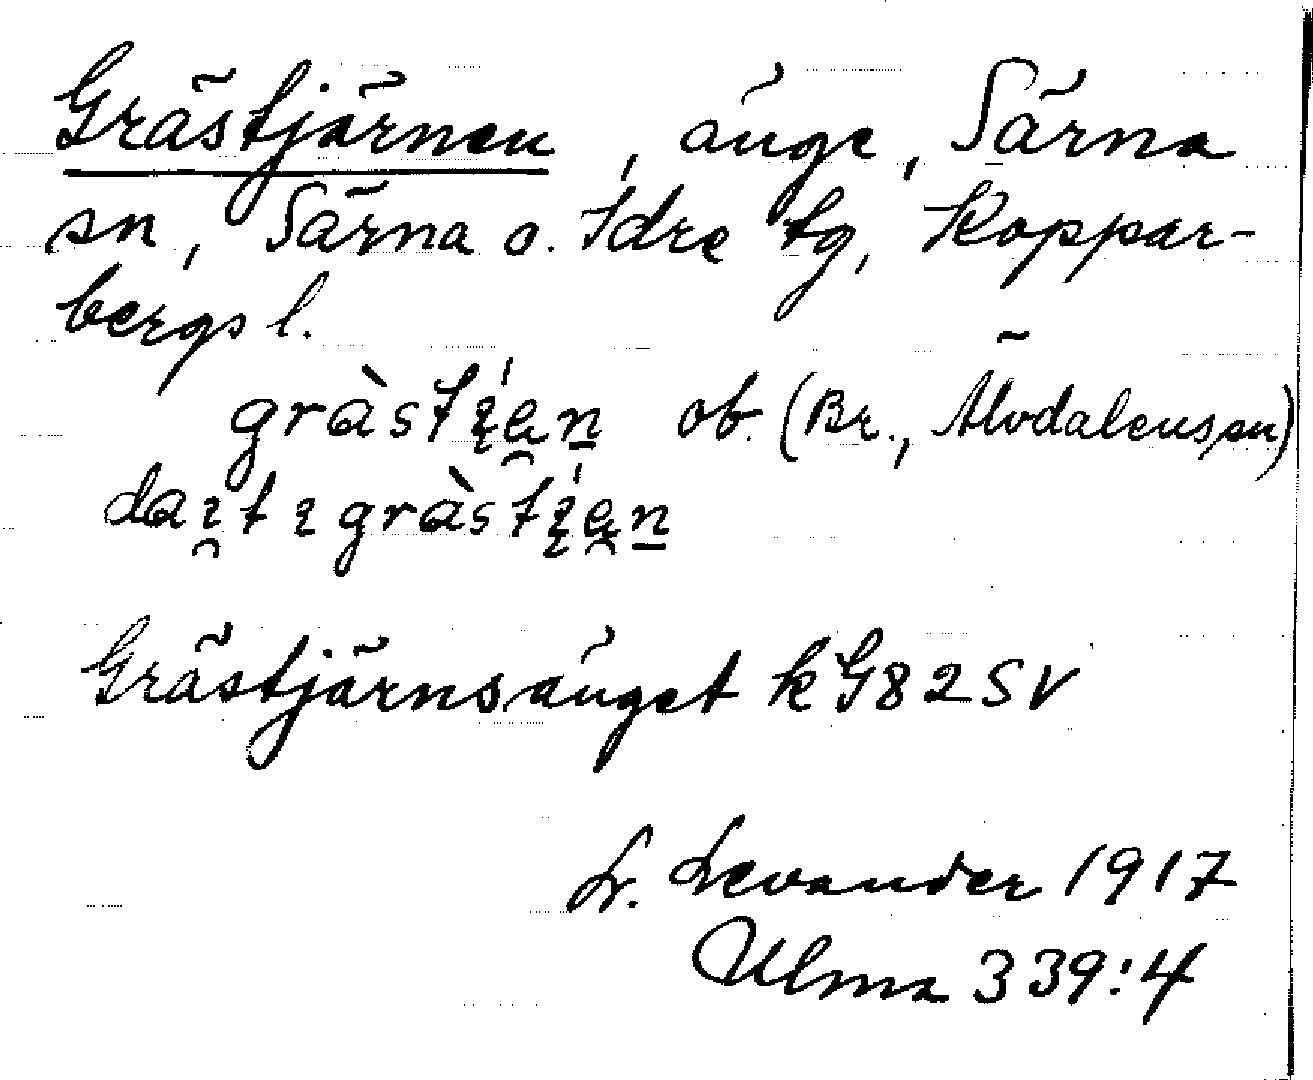 Grästjärnen, änge, Särna
sn, Särna o. Idre tg, Koppar-
bergs l.
ob. (Br., Älvdalens sn)
Grästjärnsänget kG82SV
L. Levander 1917
Ulma 339:4